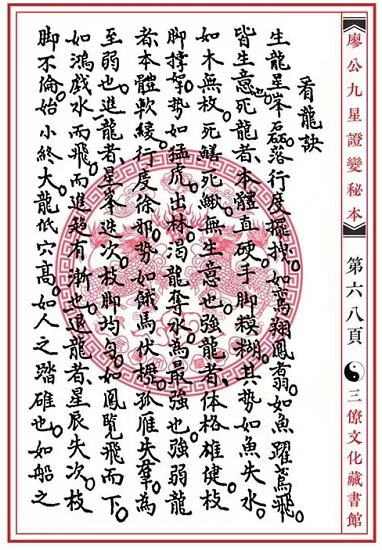 《廖公九星證變秘本》 第六八頁 三僚文化藏書館
看龍訣
生龍星峯磊落行度擺。如鸞翔鳳翥。如魚躍鳶飛。
皆生意也。死龍者、本體直硬手脚模糊其勢如魚失水。
如木無枝。死鱔死鰍。無生意也。強龍者、体格雄健枝
脚撑拏。勢如猛虎出林。渴龍奪水。為最強也。弱龍
者、本體軟緩。行度徐邪。勢如餓馬伏櫪。孤雁失羣。為
至弱也。進龍者、星峯迭次。枝脚均匀。如鳳覽飛而下。
如鴻戲水而飛。而進趨有漸也。退龍者、星辰失次。枝
脚不倫。始小終大。龍低穴高。如人之踏碓也。如船之